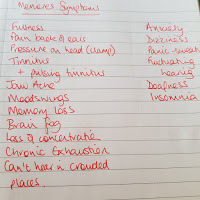 Menieres Symptoms
Fullness
Pain back of ears
Pressure on head (clamp)
Tinnitus
+ pulsing tinnitus
Jaw Ache
Moodswings
Memory Loss
Brain fog
Loss of concentration
Chronic Exhaustion
Can't hear in crowded
places.
Anxiety
Dizziness
Panic sweats
Fluctuating
hearing
Deafness
Insomnia